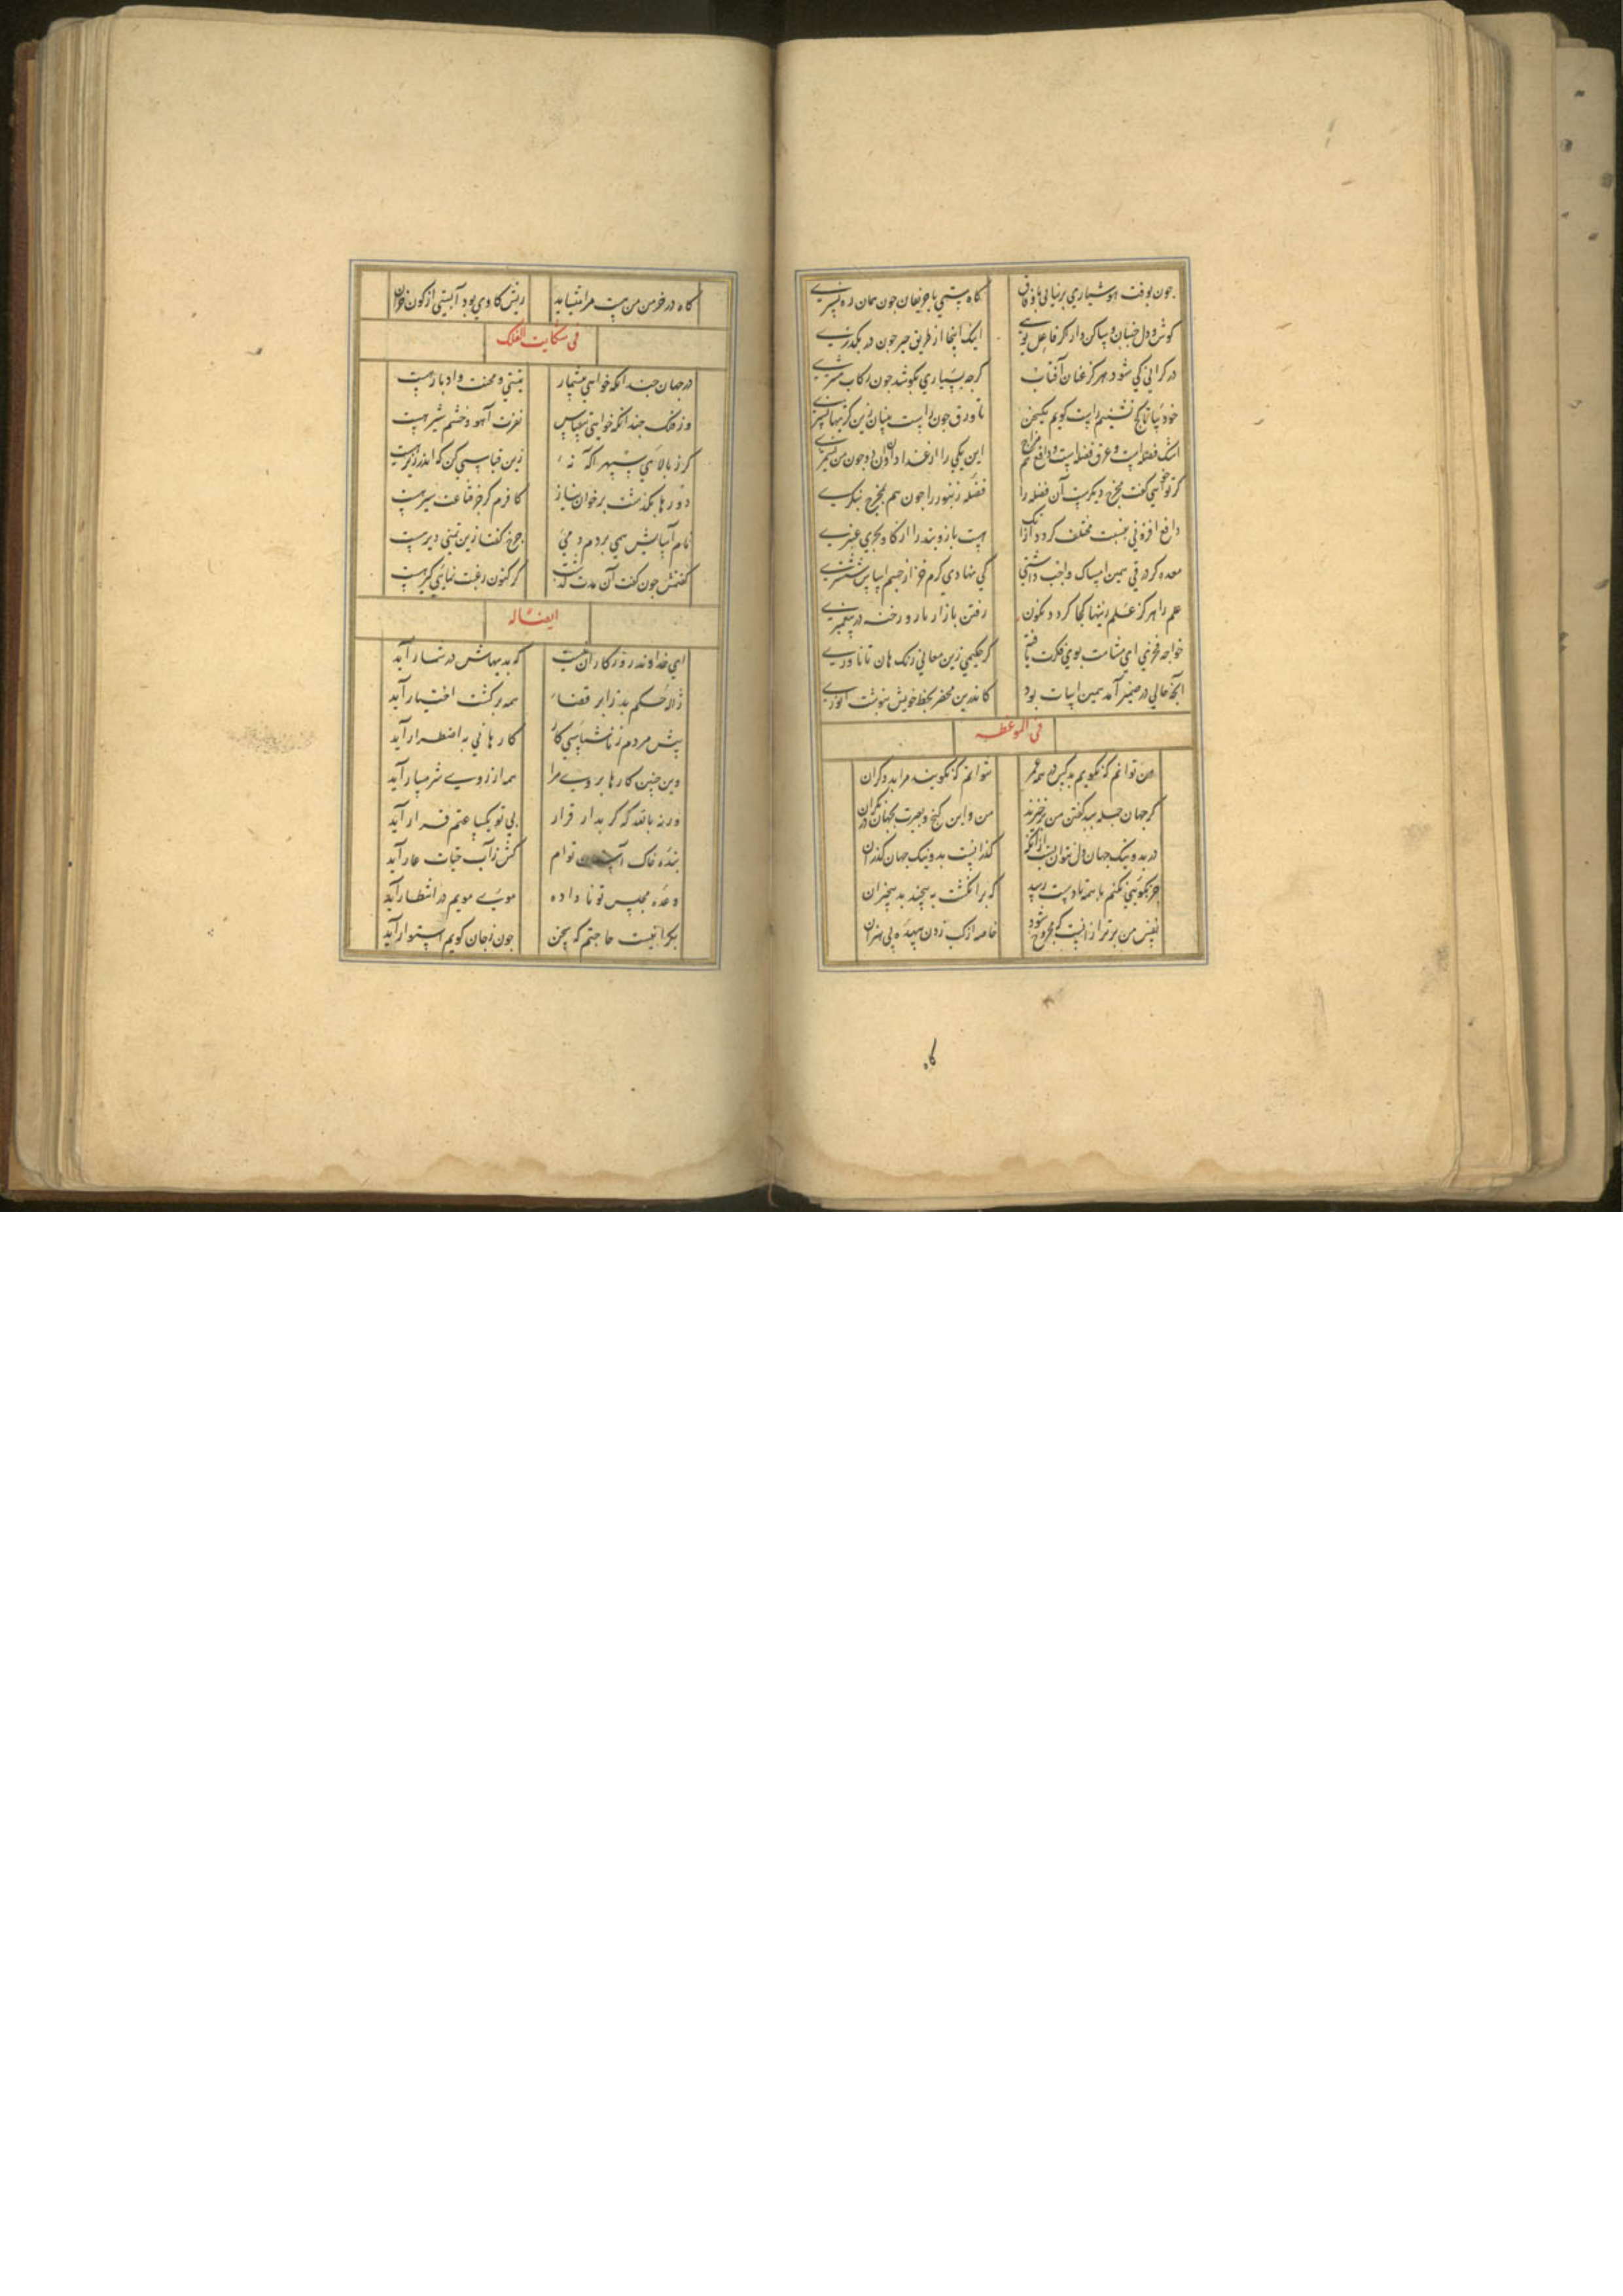 چون بوقت هوشیاری برنیائی با وقاق گاه مستی با حریفان چون همان ره نسپری
گوش و دل جنبان و ساکن دار اینک اینجا از طریق جبر چون در نگذری
در گرانی کی شود هرگز عنان آفتاب گرچه بسیاری بکوشد چون رکاب مشتری
خود بیا تا کج نشینیم راست گویم یکسخن تا ورق چون راست بینان زین
اشک فضله است و عرق فضله است و دافع این یکی را از غدا دان آن
گر تو خواهی گفت مخرج دیگرست آن فضله را فضله زنبور را چون هم بمخرج ننگری
دافع افزونی بنسبت مختلف گردد از آنک هست بازو بند را از گاو بحری عنبری
معده گر در قی همین امساک واجب داشتی کی نهادی کرم قز از جسم اساس ششتری
علم را هرگز علم زینها کجا گردد نگون رفتن بازار بار و رخنه در پیغمبری
خواجه فخری ای مشامت بوی فکرت یافته گر حکیمی زین معانی رنگ هان تا ناوری
آنچه حالی در ضمیر آمد همین ابیات بود کاندرین محضر بخط خویش بنوشت انوری
فی الموعظه
من توانم که نگویم بد کس در همه عمر نتوانم که نگویند مرا بد دگران
گر جهان جمله ببد گفتن من برخیزند من و این کنج و بعبرت بجهان در نگران
در بد و نیک جهان دل نتوان بست از آنک گذرانست بد و نیک جهان گذران
جز نکوئی نکنم با همه تا دست رسد که بر انگشت نپیچند بد بیخبران
نفس من برتر از آنست که مجروح شود خاصه از گپ زدن بیهده بی بصران
گاه
گاه در خرمن من هست مرا مینشاید ریش گاوی بود آبستنی از کون خران
فی شکایت الفلک
در جهان چندانکه خواهی بیشمار نیستی و محنت و ادبار هست
وز فلک چندانکه خواهی بیقیاس نفرت آهو و خشم شیر هست
گر ز بالای سپهر آگه نه زین قیاسی کن که اندر زیر هست
دورها بگذشت بر خوان نیاز کافرم گر جز قناعت سیر هست
نام آسایش همی بردم دمی چرخ گفتا زین تمنی دیر هست
گفتمش چون گفت آن مدت گذشت گر کنون رغبت نمائی گیر هست
ایضا له
ای خداوند روزگار آن نیست که بدیهاش در شمار آید
ژاله حکم بد ز ابر قضا همه بر کشت اختیار آید
پیش مردم ز ناشناسی کار کارهائی به اضطرار آید
وین چنین کارها بروی مرا همه از روی شرمسار آید
ورنه بالله که گر بدار قرار بی تو یکساعتم قرار آید
بنده خاک توام کش ز آب حیات عار آید
وعده مجلس تو نا داده موی مویم در انتظار آید
بگرانیست حاجتم که سخن چون ز جان گویم استوار آید